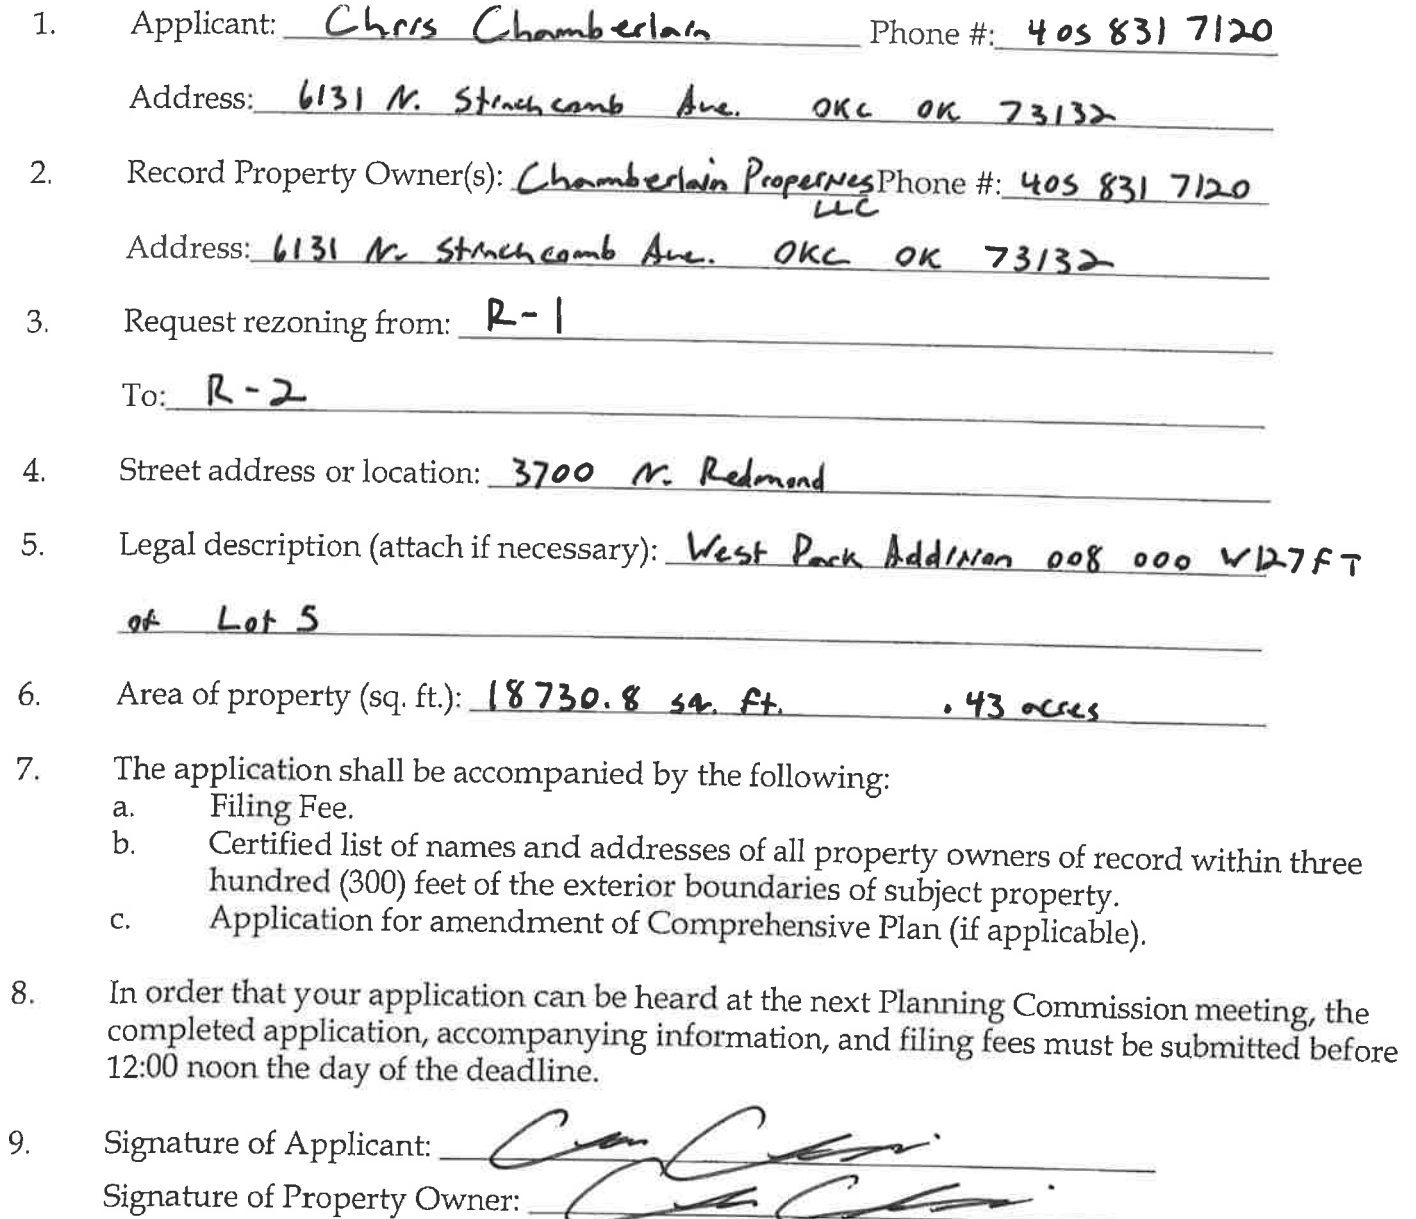 1. Applicant: Chris Chamberlain Phone #: 405 831 7120
Address: 6131 N. Stinchcomb Ave. OKC OK 73132
2. Record Property Owner(s): Chamberlain Properties Phone #: 405 831 7120
LLC
Address: 6131 N. Stinchcomb Ave. OKC OK 73132
3. Request rezoning from: R-1
To: R-2
4. Street address or location: 3700 N. Redmond
5. Legal description (attach if necessary): West Park Addition 008 000 W127FT
of Lot 5
6. Area of property (sq. ft.): 18730.8 sq. ft. .43 acres
7. The application shall be accompanied by the following:
a. Filing Fee.
b. Certified list of names and addresses of all property owners of record within three
hundred (300) feet of the exterior boundaries of subject property.
c. Application for amendment of Comprehensive Plan (if applicable).
8. In order that your application can be heard at the next Planning Commission meeting, the
completed application, accompanying information, and filing fees must be submitted before
12:00 noon the day of the deadline.
9. Signature of Applicant:
Signature of Property Owner: